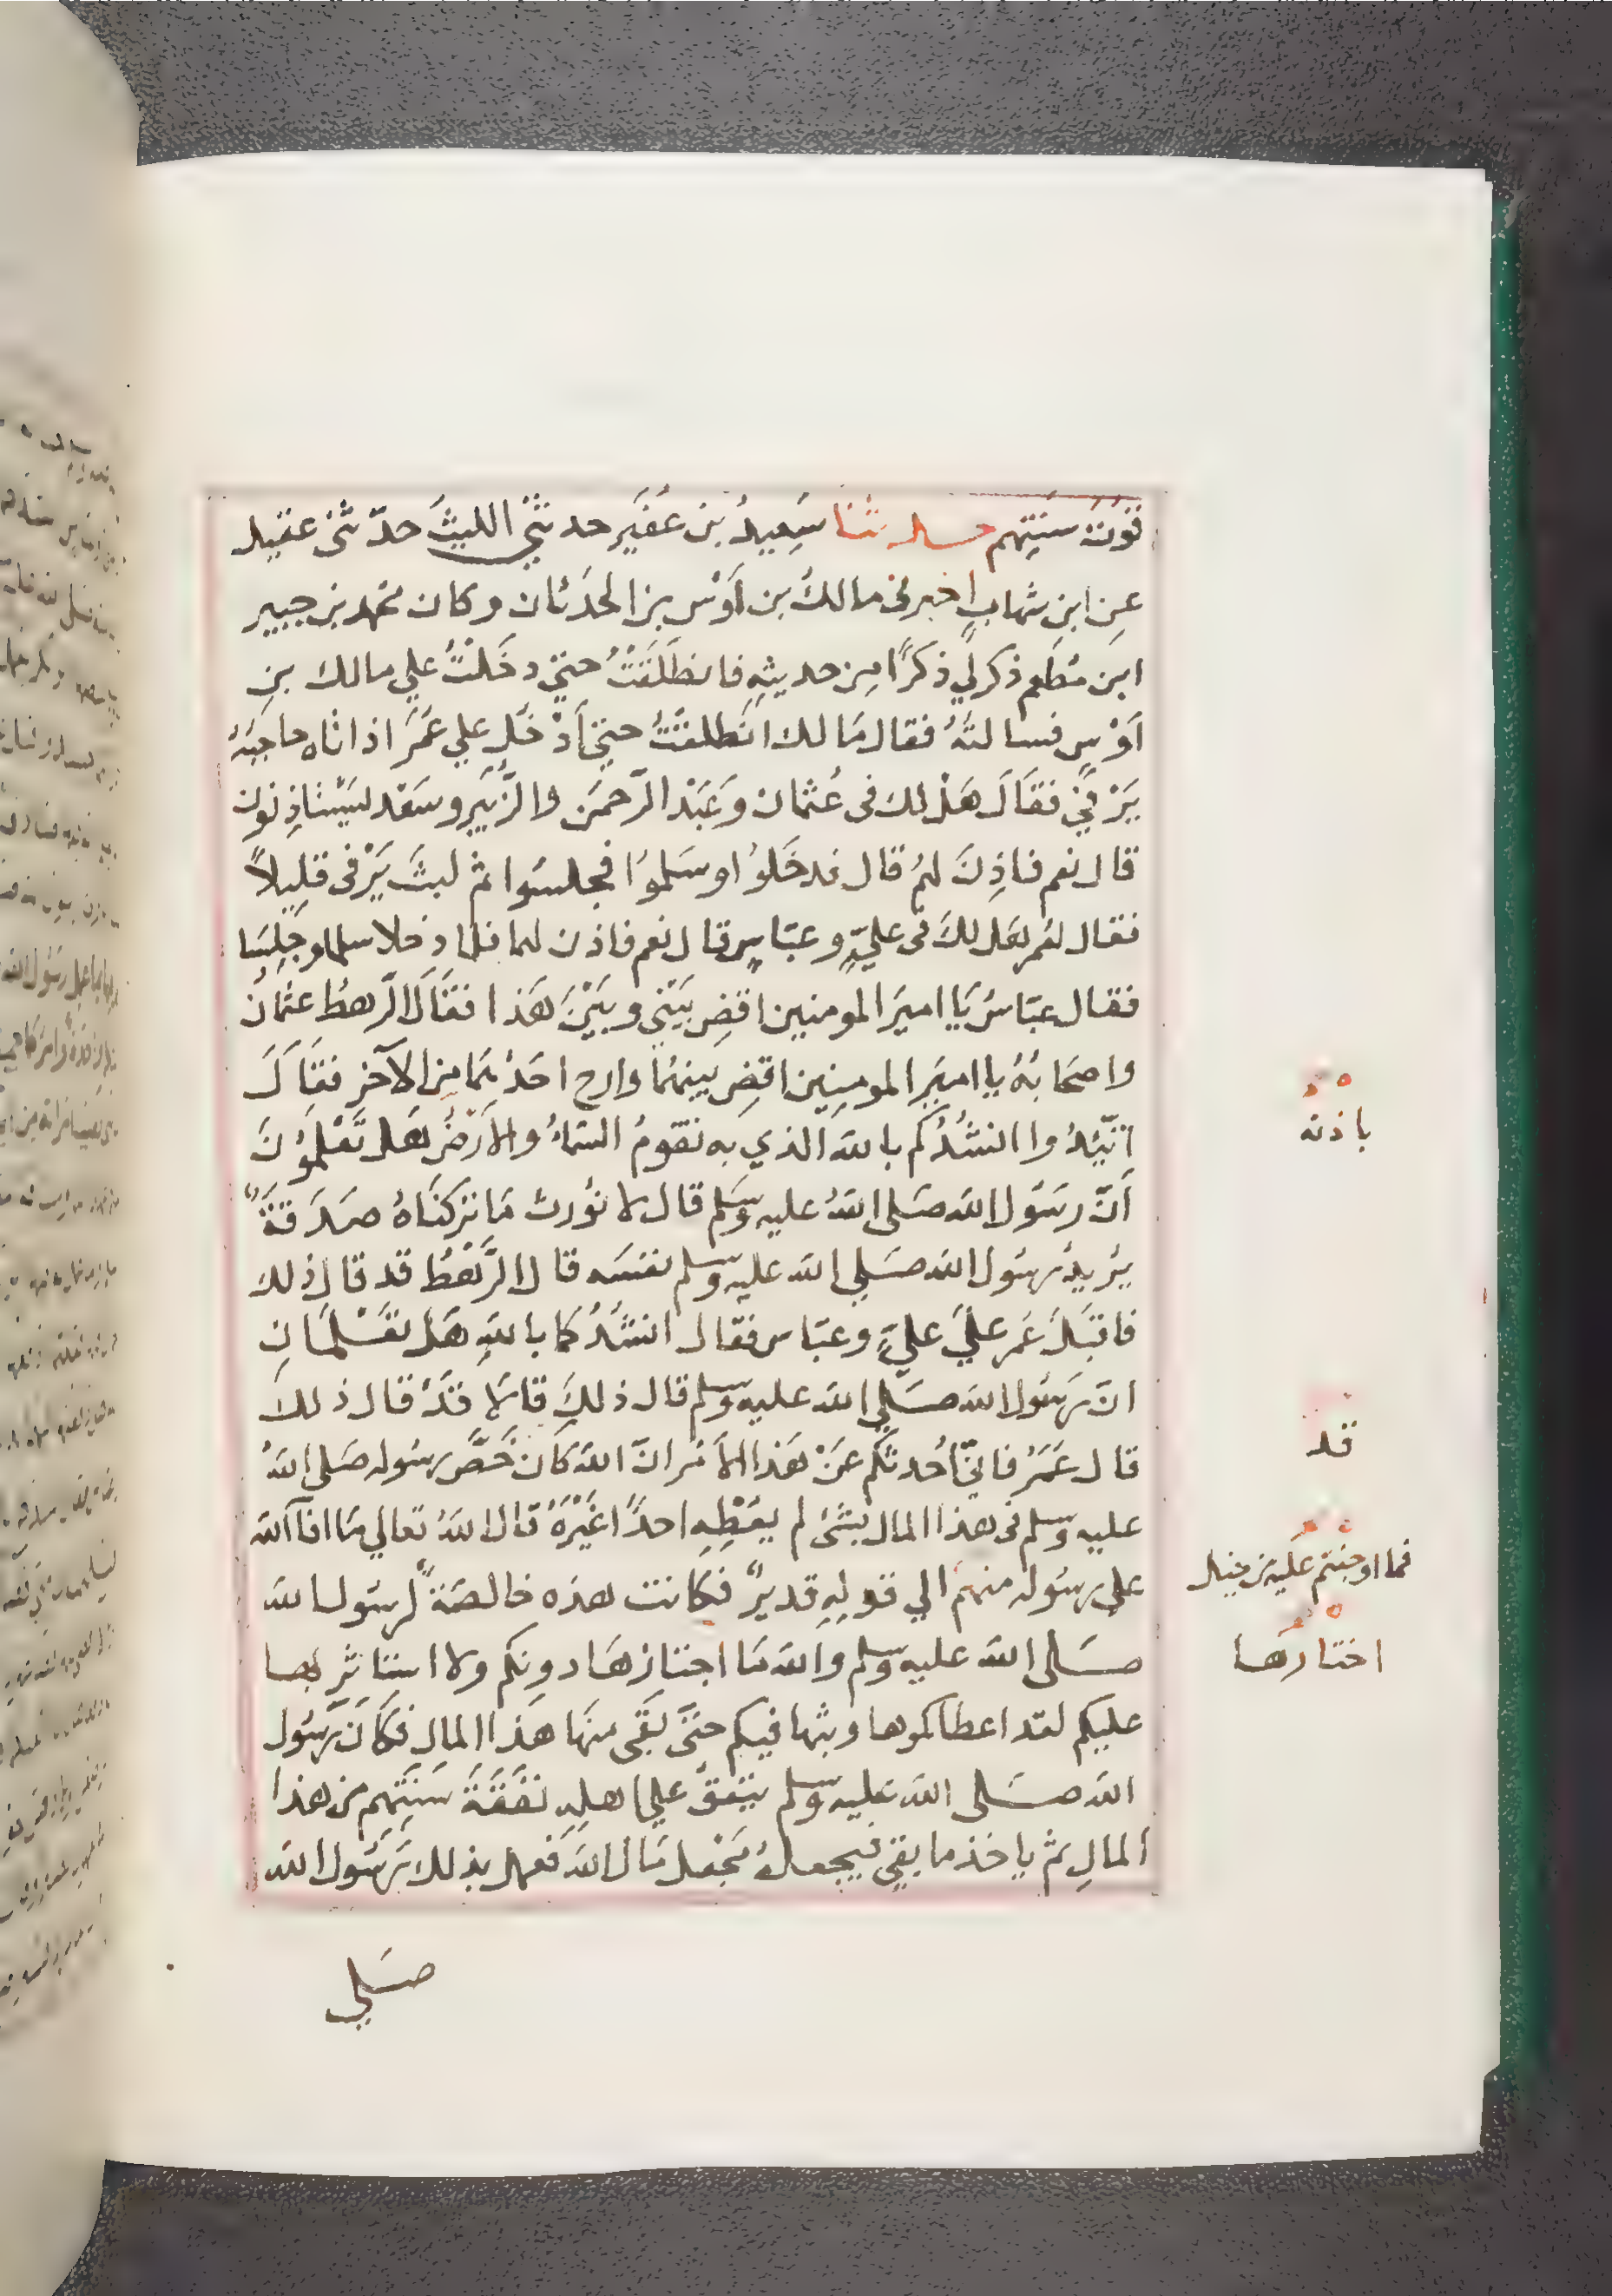 قُوْتَ سَنَتِهِم حدثنا سَعِيدُ بن عُفَيرٍ حدثني الليثُ حدّثنى عقيل
عنِ ابنِ شهابٍ اخبرنى مالكُ بن أوْس بن الحدَثان وكان محمد بن جبير
ابن مُطعِم ذكر لي ذكرًا مِن حديثِهِ فانطَلَقتُ حتي دخَلتُ علي مالك بنِ
اَوْسٍ فسالتهُ فقال مَالك انطلقتُ حتي اَدْخُلَ علي عُمَرَ اذ اتاه حاجبُهُ
يَرْفيٰ فقَالَ هَلْ لك فى عُثمان وَعَبْد الرَّحمَن والزُّبَيرِ وسَعْد يَسْتاذِنون
قال نعم فاذِنَ لهُم قال فدخَلوُا وسَلموُا فجلسُوا ثم لبثَ يَرْفى قلِيلاً
فقال لعُمر هَل لكَ فى عليٍّ وعبّاسٍ قال نعم فاذن لهما فلما دخلا سلما وجَلسَا
فقال عبّاسُ يَا اميرَ المومنين اقضِ بَيْني وبَيْنَ هَذا فقَالَ الرَّهطُ عثمان
واصحَابُهُ يا اميرَ المومِنِين اقضِ بينهُما وارح احَدُهمَا مِن الآخرِ فقَالَ
اتَّئِدُوا انشُدُكم باللهَ الذي به تقومُ السّماءُ والارْضُ هَل تَعْلموُنَ
أنّ رسَوُل الله صَلى اللهُ عليه وسَلم قال لا نُورث مَا تركنَاهُ صَدَقةً
يُريدُ رسُول الله صَلي الله عليه وسلم نفسَه قال الرَّهْطُ قد قال ذلك
فاقبَلَ عُمر علَي عليٍّ وعبّاس فقال انشُدُكما باللهِ هَل تعْلمَانِ
انّ رسُول الله صَلي الله عليه وسلم قال ذلِكَ قالا قَدْ قال ذلكَ
قال عُمَرُ فانّي اُحدثكم عَنْ هَذا الأمْر انّ الله كَان خَصَّ رسُوله صَلى اللهُ
عليه وسلم فى هذا المال بشئ لم يعُطِهِ احدًا غيْرَهُ قال اللهُ تعالي مَا افآ الله
علي رسُوله منهم الي قولِهِ قديرٌ فكانت هذه خالصَةً لرسُول الله
صَلى الله عليه وسلم والله مَا اجتازهَا دونكم ولا استاثر بها
عليكم لقد اعطاكموها وبثها فيكم حتَّى بَقى منهَا هَذا المال فكَانَ رسُول
الله صَلى الله عليه وسلم ينفقُ علي اهلِهِ نفَقَةَ سَنَتِهِم من هذا
المالِ ثم ياخذ ما بقي فيجعلهُ مَجْعل مَال الله فعمل بذلك رسُول الله
صَلي
باذنه
قد
فما اوجفتم عَليه من خيل
اختارها